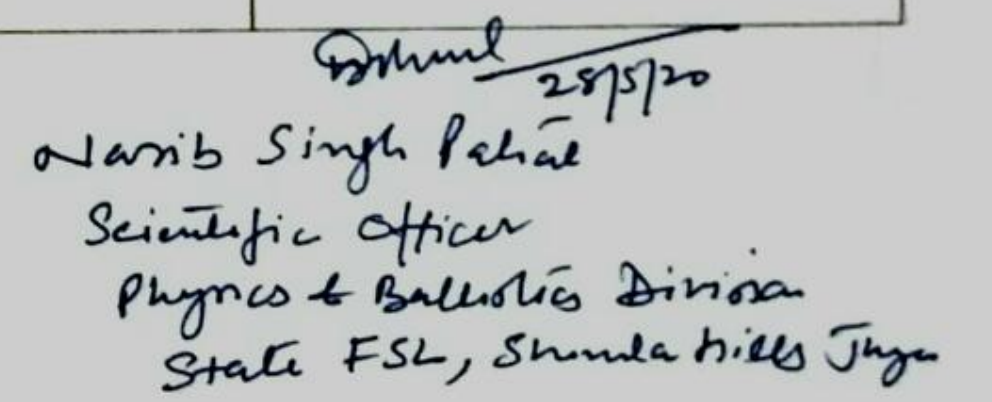 28/5/20
Nasib Singh Patial
Scientific Officer
Physics & Ballistics Division
State FSL, Shimla Hills Junga